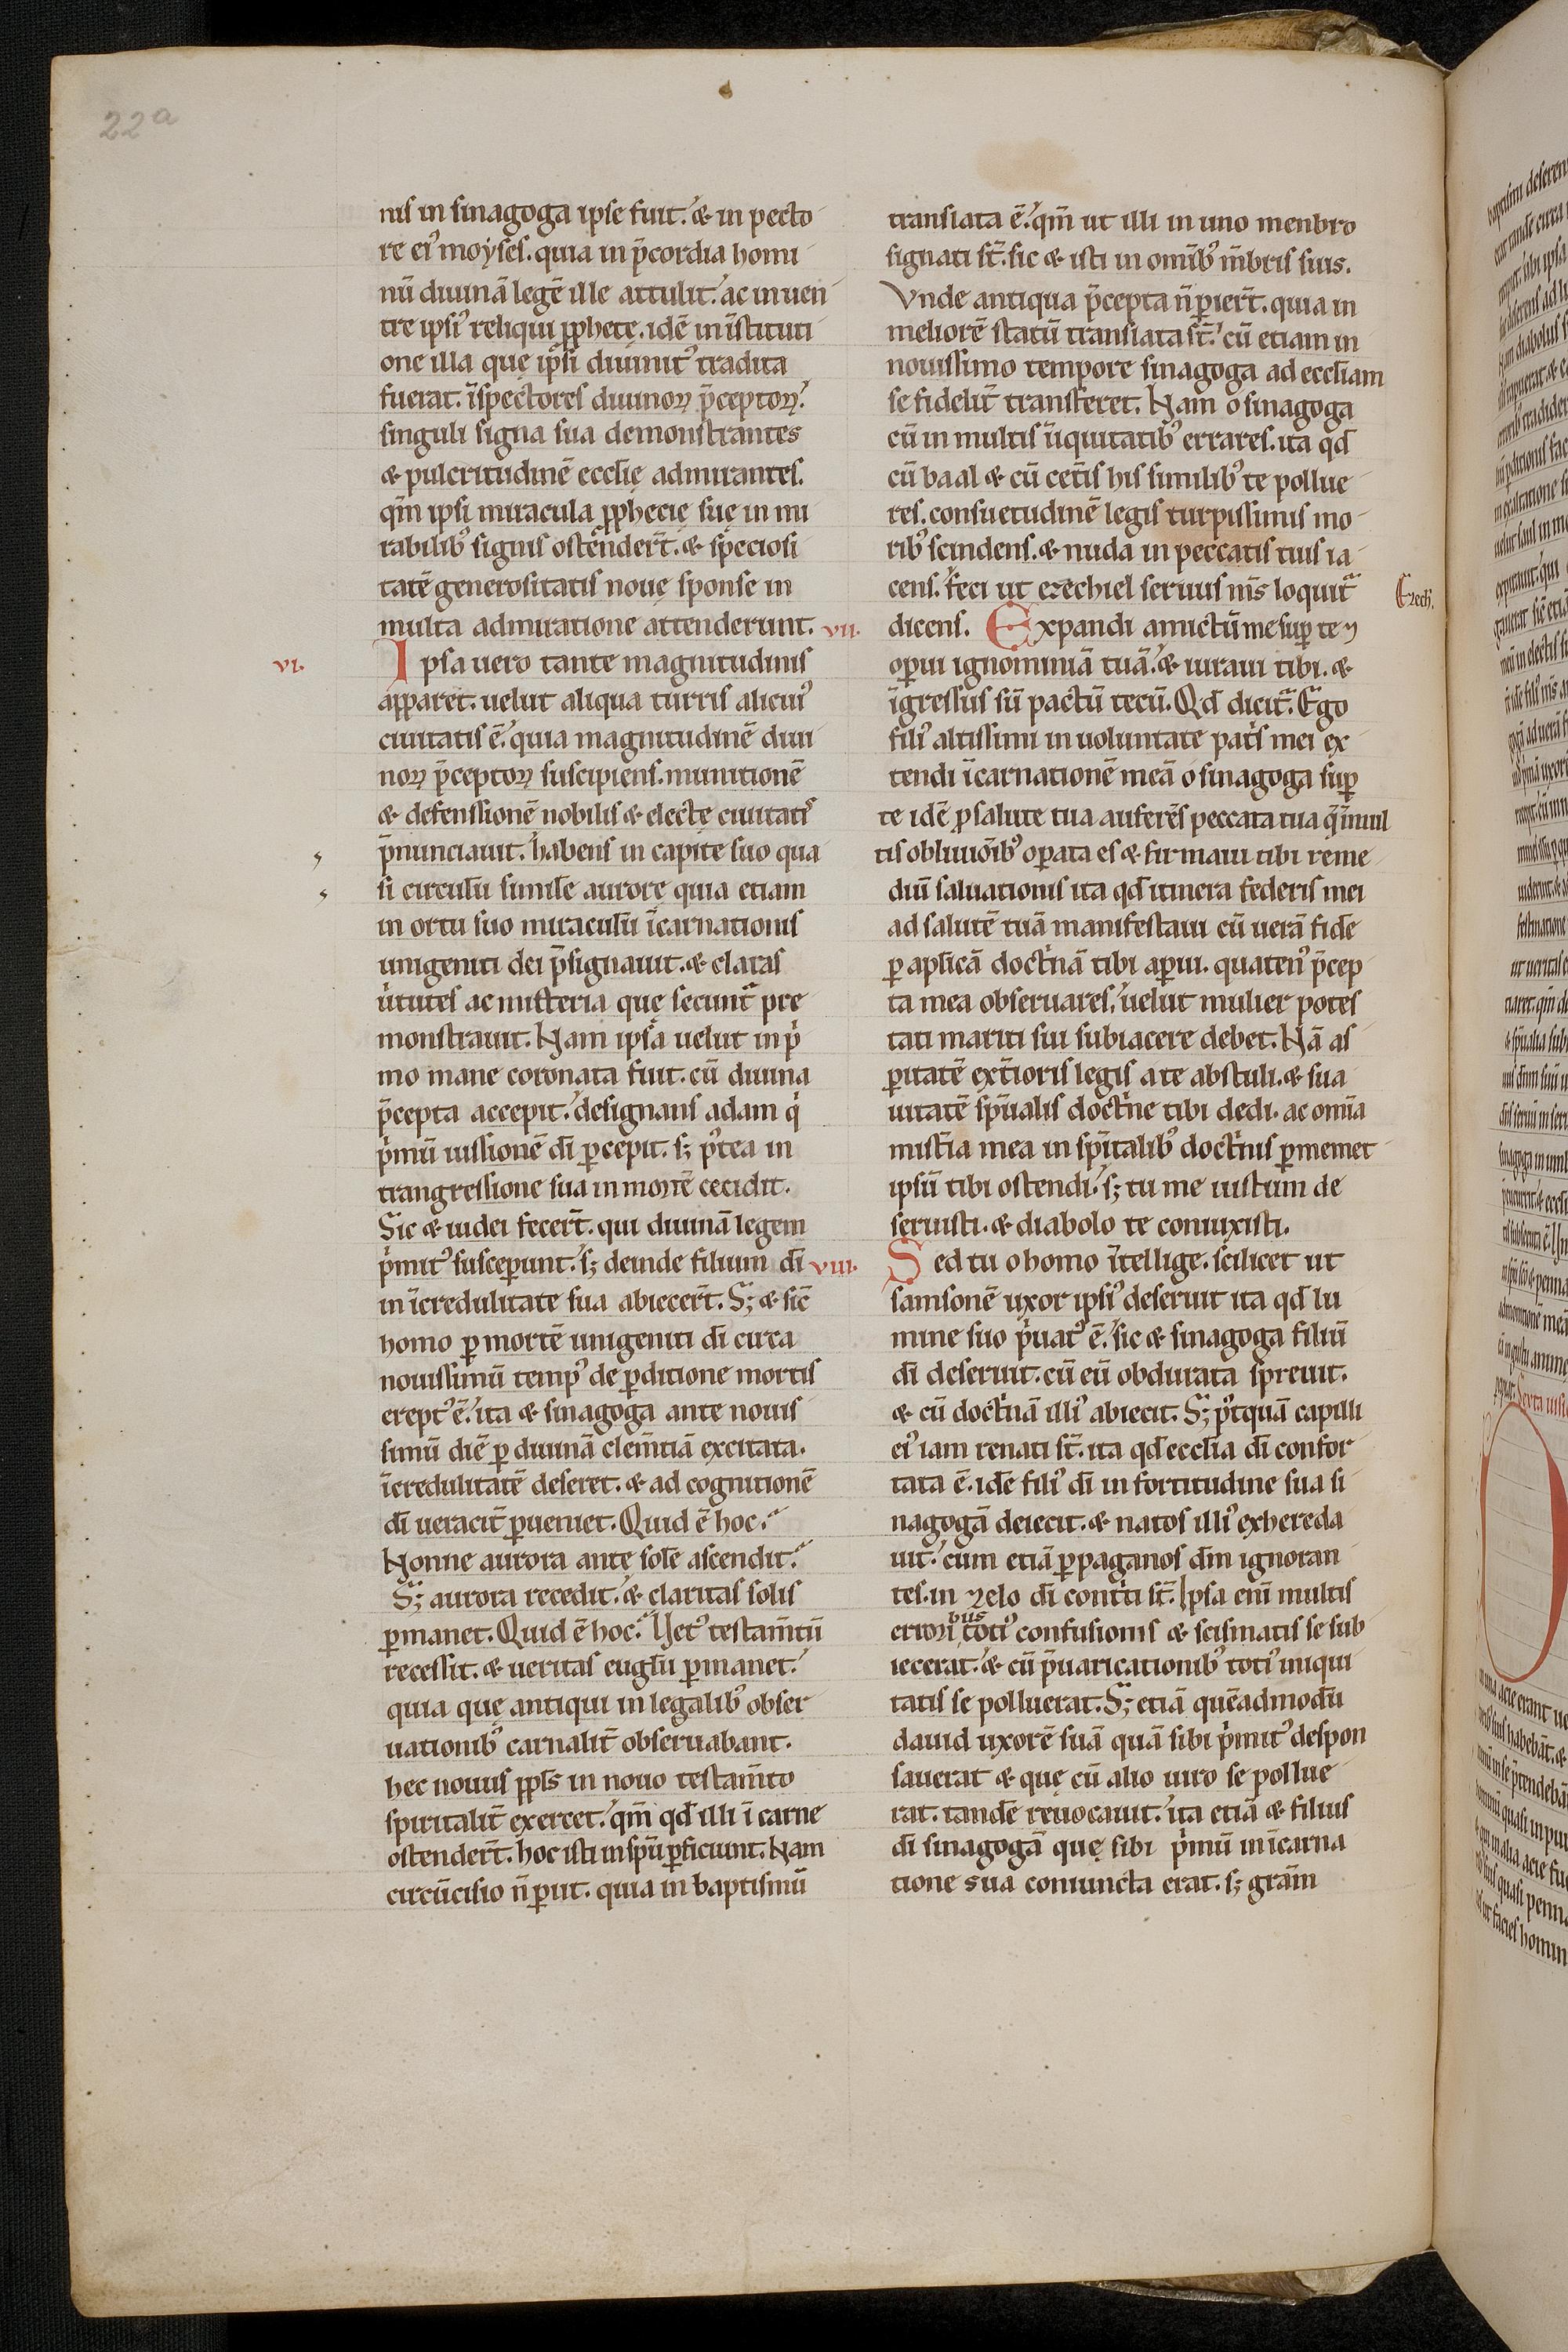 22a
nis in sinagoga ipse fuit. & in pecto
re eiꝰ moyses. quia in p̄cordia homi
nū diuinā legē ille attulit. ac in uen
tre ipsiꝰ reliqui ꝓphetę. idē in īstituti
one illa quę ipsi diuinitꝰ tradita
fuerat. īspectores diuinoꝝ p̄ceptoꝝ.
singuli signa sua demonstrantes
& pulcritudinē ecclię admirantes.
qm̄ ipsi miracula ꝓphecię suę in mi
rabilibꝰ signis ostēndert̄. & speciosi
tatē generositatis nouę sponse in
multa admiratione attenderunt.
vi.
Ipsa uero tante magnitudinis
apparet. uelut aliqua turris alicuiꝰ
ciuitatis ē. quia magnitudinē diui
noꝝ p̄ceptoꝝ suscipiens. munitionē
& defenssionē nobilis & electe ciuitatis
p̄nunciauit. habens in capite suo qua
si circulū simile aurorę quia etiam
in ortu suo miraculū īcarnationis
unigeniti dei p̄signauit. & claras
uͥtutes ac misteria quę secunt᷑ pre
monstrauit. Nam ipsa uelut in pͥ
mo mane coronata fuit. cū diuina
p̄cepta accepit. designans adam qͥ
pͥmū iussionē dī ꝑcepit. sꝫ pꝰtea in
trangressione sua in mortē cecidit.
Sic & iudei fecert̄. qui diuinā legem
pͥmitꝰ susceꝑunt. sꝫ deinde filium dī
in īcredulitate sua abiecert̄. Sꝫ & sic̄
homo ꝑ mortē unigeniti dī circa
nouissimū tempꝰ de ꝑditione mortis
ereptꝰ ē. ita & sinagoga ante nouis
simū diē ꝑ diuinā clem̄tiā excitata.
īcredulitatē deseret. & ad cognitionē
dī ueracit̄ ꝑueniet. Quid ē hoc.
Nonne aurora ante solē ascendit.
Sꝫ aurora recedit. & claritas solis
ꝑmanet. Quid ē hoc. Uetꝰ testam̄tū
recessit. & ueritas euglii ꝑmanet.
quia quę antiqui in legalibꝰ obser
uationibꝰ carnalit̄ obseruabant.
hec nouus ppl̄s in nouo testam̄to
spiritalit̄ exercet. qm̄ qd̄ illi ī carne
ostendert̄. hoc isti in spū ꝑficiunt. Nam
circūcisio n̄ ꝑiit. quia in baptismū
translata ē. qm̄ ut illi in uno menbro
signati st̄. sic & isti in omībꝰ m̄bris suis.
Vnde antiqua p̄cepta n̄ ꝑiert̄. quia in
meliorē statū translata st̄. cū etiam in
nouissimo tempore sinagoga ad eccliam
se fidelit̄ transferet. Nam o sinagoga
cū in multis īiquitatibꝰ errares. ita qd̄
cū baal & cū cet̄is his similibꝰ te pollue
res. consuetudinē legis turpissimis mo
ribꝰ scindens. & nuda in peccatis tuis ia
cens. feci ut ezechiel seruus ms̄ loquit᷑
Ezech.
vii.
dicens. Expandi amictū meū suꝑ te &
oꝑui ignominiā tuā. & iuraui tibi. &
īgressus sū pactū tecū. Qd̄ dicit᷑. Ego
filiꝰ altissimi in uoluntate patͥs mei ex
tendi īcarnationē meā o sinagoga suꝑ
te idē ꝓ salute tua auferēs peccata tua q̄ ī mul
tis obliuiōībꝰ oꝑata es & firmaui tibi reme
diū saluationis ita qd̄ itinera federis mei
ad salutē tuā manifestaui cū uerā fidē
ꝑ aplicā doctͥnā tibi aꝑui. quatenꝰ p̄cep
ta mea obseruares. uelut mulier potes
tati mariti sui subiacere debet. Nā as
ꝑitatē ext̄ioris legis a te abstuli. & sua
uitatē spūalis doctͥne tibi dedi. ac omīa
mist̄ia mea in spīitalibꝰ doctͥnis ꝑ memet
ipsū tibi ostendi. sꝫ tu me iustum de
seruisti. & diabolo te coniuxisti.
viii.
Sed tu o homo ītellige. scilicet ut
samsonē uxor ipsiꝰ deseruit ita qd̄ lu
mine suo pͥuatꝰ ē. sic & sinagoga filiū
dī deseruit. cū eū obdurata spreuit.
& cū doctͥnā illiꝰ abiecit. Sꝫ pꝰtquā capilli
eiꝰ iam renati st̄. ita qd̄ ecclia dī confor
tata ē. idē filiꝰ dī in fortitudine sua si
nagogā deiecit. & natos illiꝰ exhereda
uit. cum etiā ꝑ paganos dm̄ ignoran
tes. in zelo dī contͥti st̄. Ipsa enī multis
errori bus totiꝰ confusionis & scismatis se sub
iecerat. & cū p̄uaricationibꝰ totiꝰ iniqui
tatis se polluerat. Sꝫ etiā quēadmodū
dauid uxorē suā quā sibi pͥmitꝰ despon
sauerat & quę cū alio uiro se pollue
rat. tandē reuocauit. ita etiā & filius
dī sinagogā quę sibi pͥmū in īcarna
tione sua coniuncta erat. sꝫ gram̄